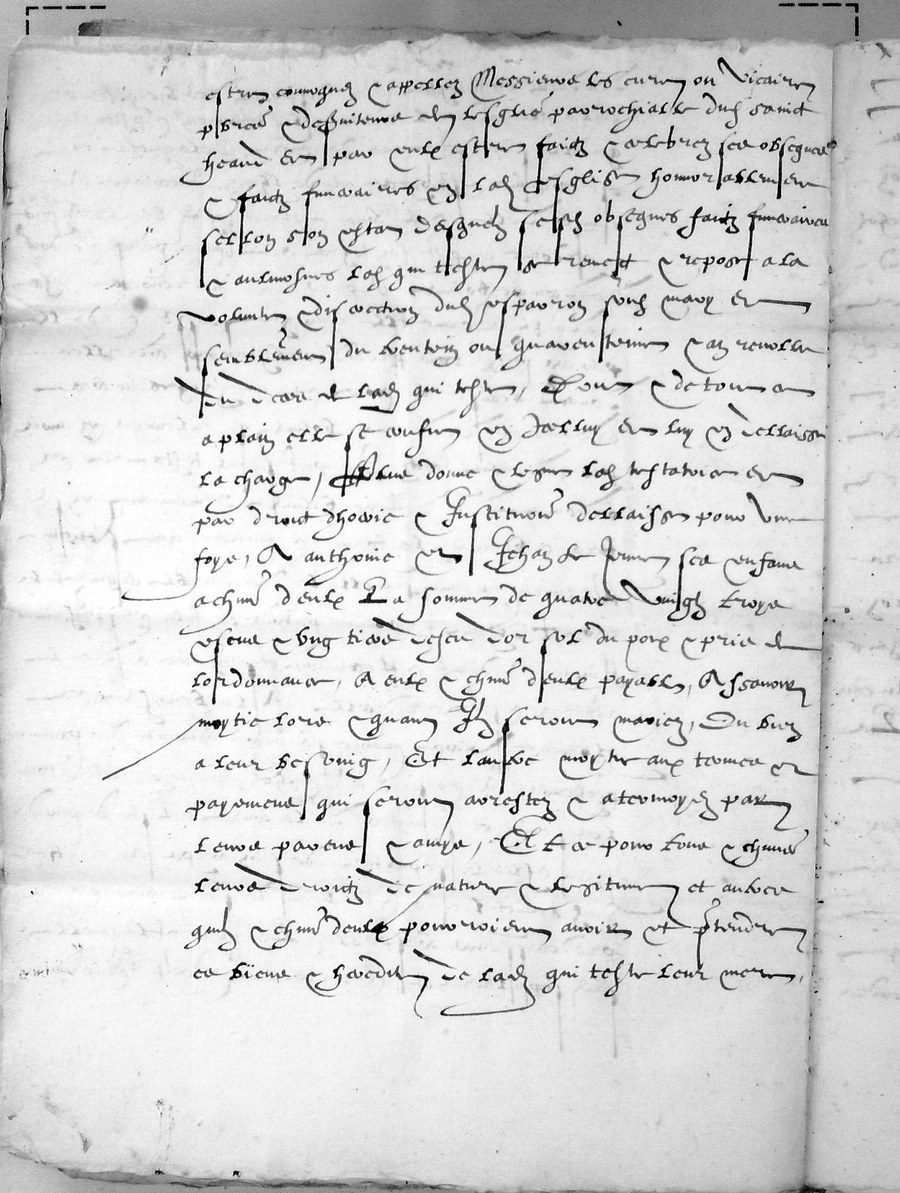 estre convoqués & appellez Messieurs les curé ou vicaire
pbres & deserviteurs de lesglise parrochialle dud sainct
et par eulx estre faictz & celebrez ses obseques
& faictz funeraires en lad esglise honnorablement
sellon son estat desquelz sesd obseques faictz funeraires
& aulmosnes lad qui teste se remect & repose a la
volunté & discretion dud sond mary et
semblement du bout de lan
du deces de lad qui teste, Dont & de tout ce
a plain elle se confie en icelluy et luy en dellaisse
la charge, Plus donne & legue lad testatrice et
par droict dhoirie & Institution dellaisse pour une
foys, A anthoine et Jehan ses enfans
a chun deulx La somme de quatre vingtz troys
escus & ung tiers descu dor sol du poix & pris de
lordonnance, A eulx & chun deulx payable, Assavoir
moytie lors & quant Ilz seront mariez, Ou bien
a leur besoing, Et laultre moytie aux termes et
payemens qui seront arrestez & atermoyez par
leurs parens & amys, Et ce pour tous & chuns
leurs droictz de nature & legitime et aultres
quilz & chun deulx pourroient avoir et pretendre
es biens & heredité de lad qui teste leur mere,